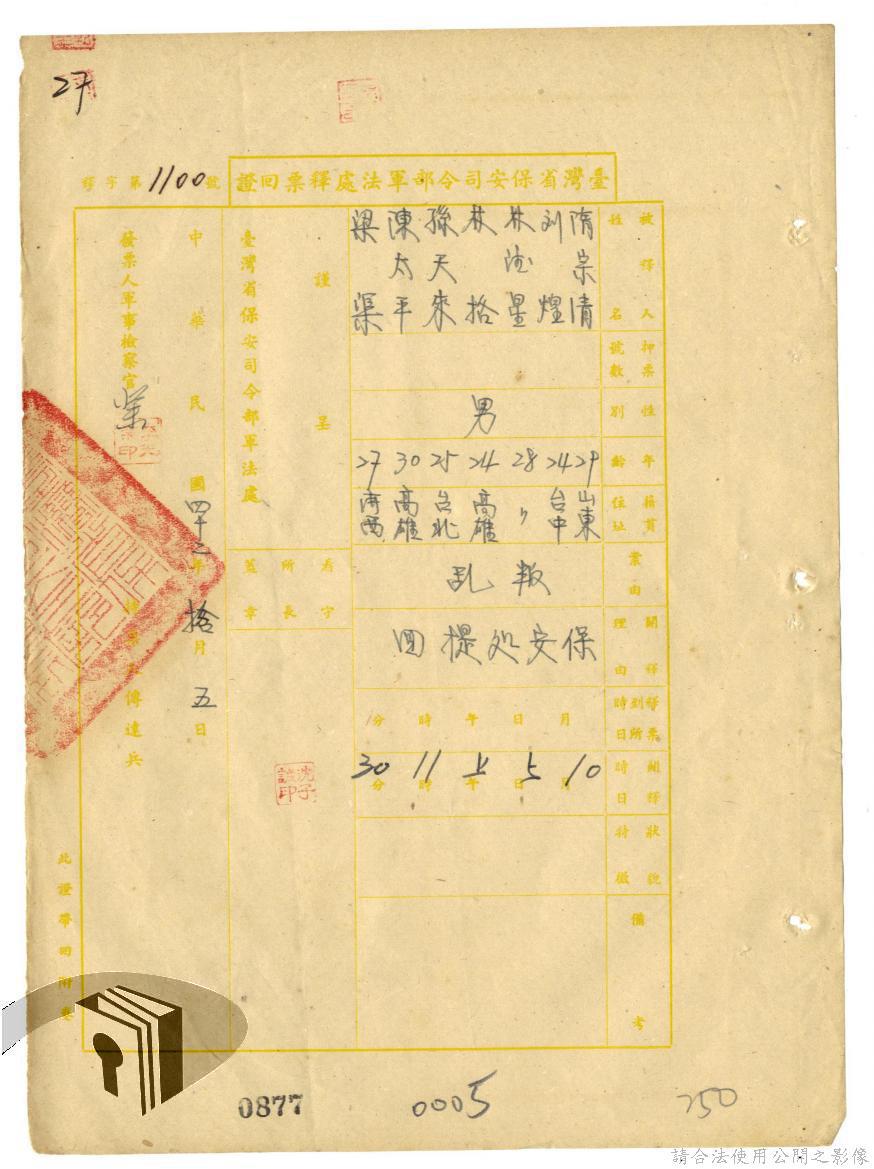 27
臺灣省保安司令部軍法處釋票回證
釋字第1100號
被釋人姓名
隋宗清
刘煌
林德星
林格
孫天來
陳太平
梁渠
押票號數
性別
男
年齡
29
24
28
24
25
30
27
籍貫住址
山東
台中
〃
高雄
台北
高雄
案由
叛乱
開釋理由
保安处提回
釋票到所時日
月 日 午 時 分
開釋時日
10月5日上午11時30分
狀貌特徵
備考
謹呈
臺灣省保安司令部軍法處
看守所長蓋章
中華民國四十二年拾月五日
發票人軍事檢察官
傳達兵
此證帶回附卷
0877
0005
250
請合法使用公開之影像